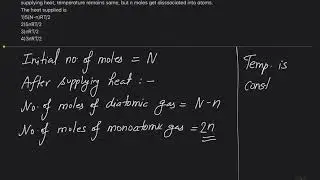 supplying heat, temperature remains same, but n moles get disssociated into atoms.
The heat supplied is
1)5(N-n)RT/2
2)5nRT/2
3)nRT/2
4)3nRT/2
Initial no. of moles = N
After supplying heat :-
No. of moles of diatomic gas = N-n
No. of moles of monoatomic gas = 2n
Temp. is
const